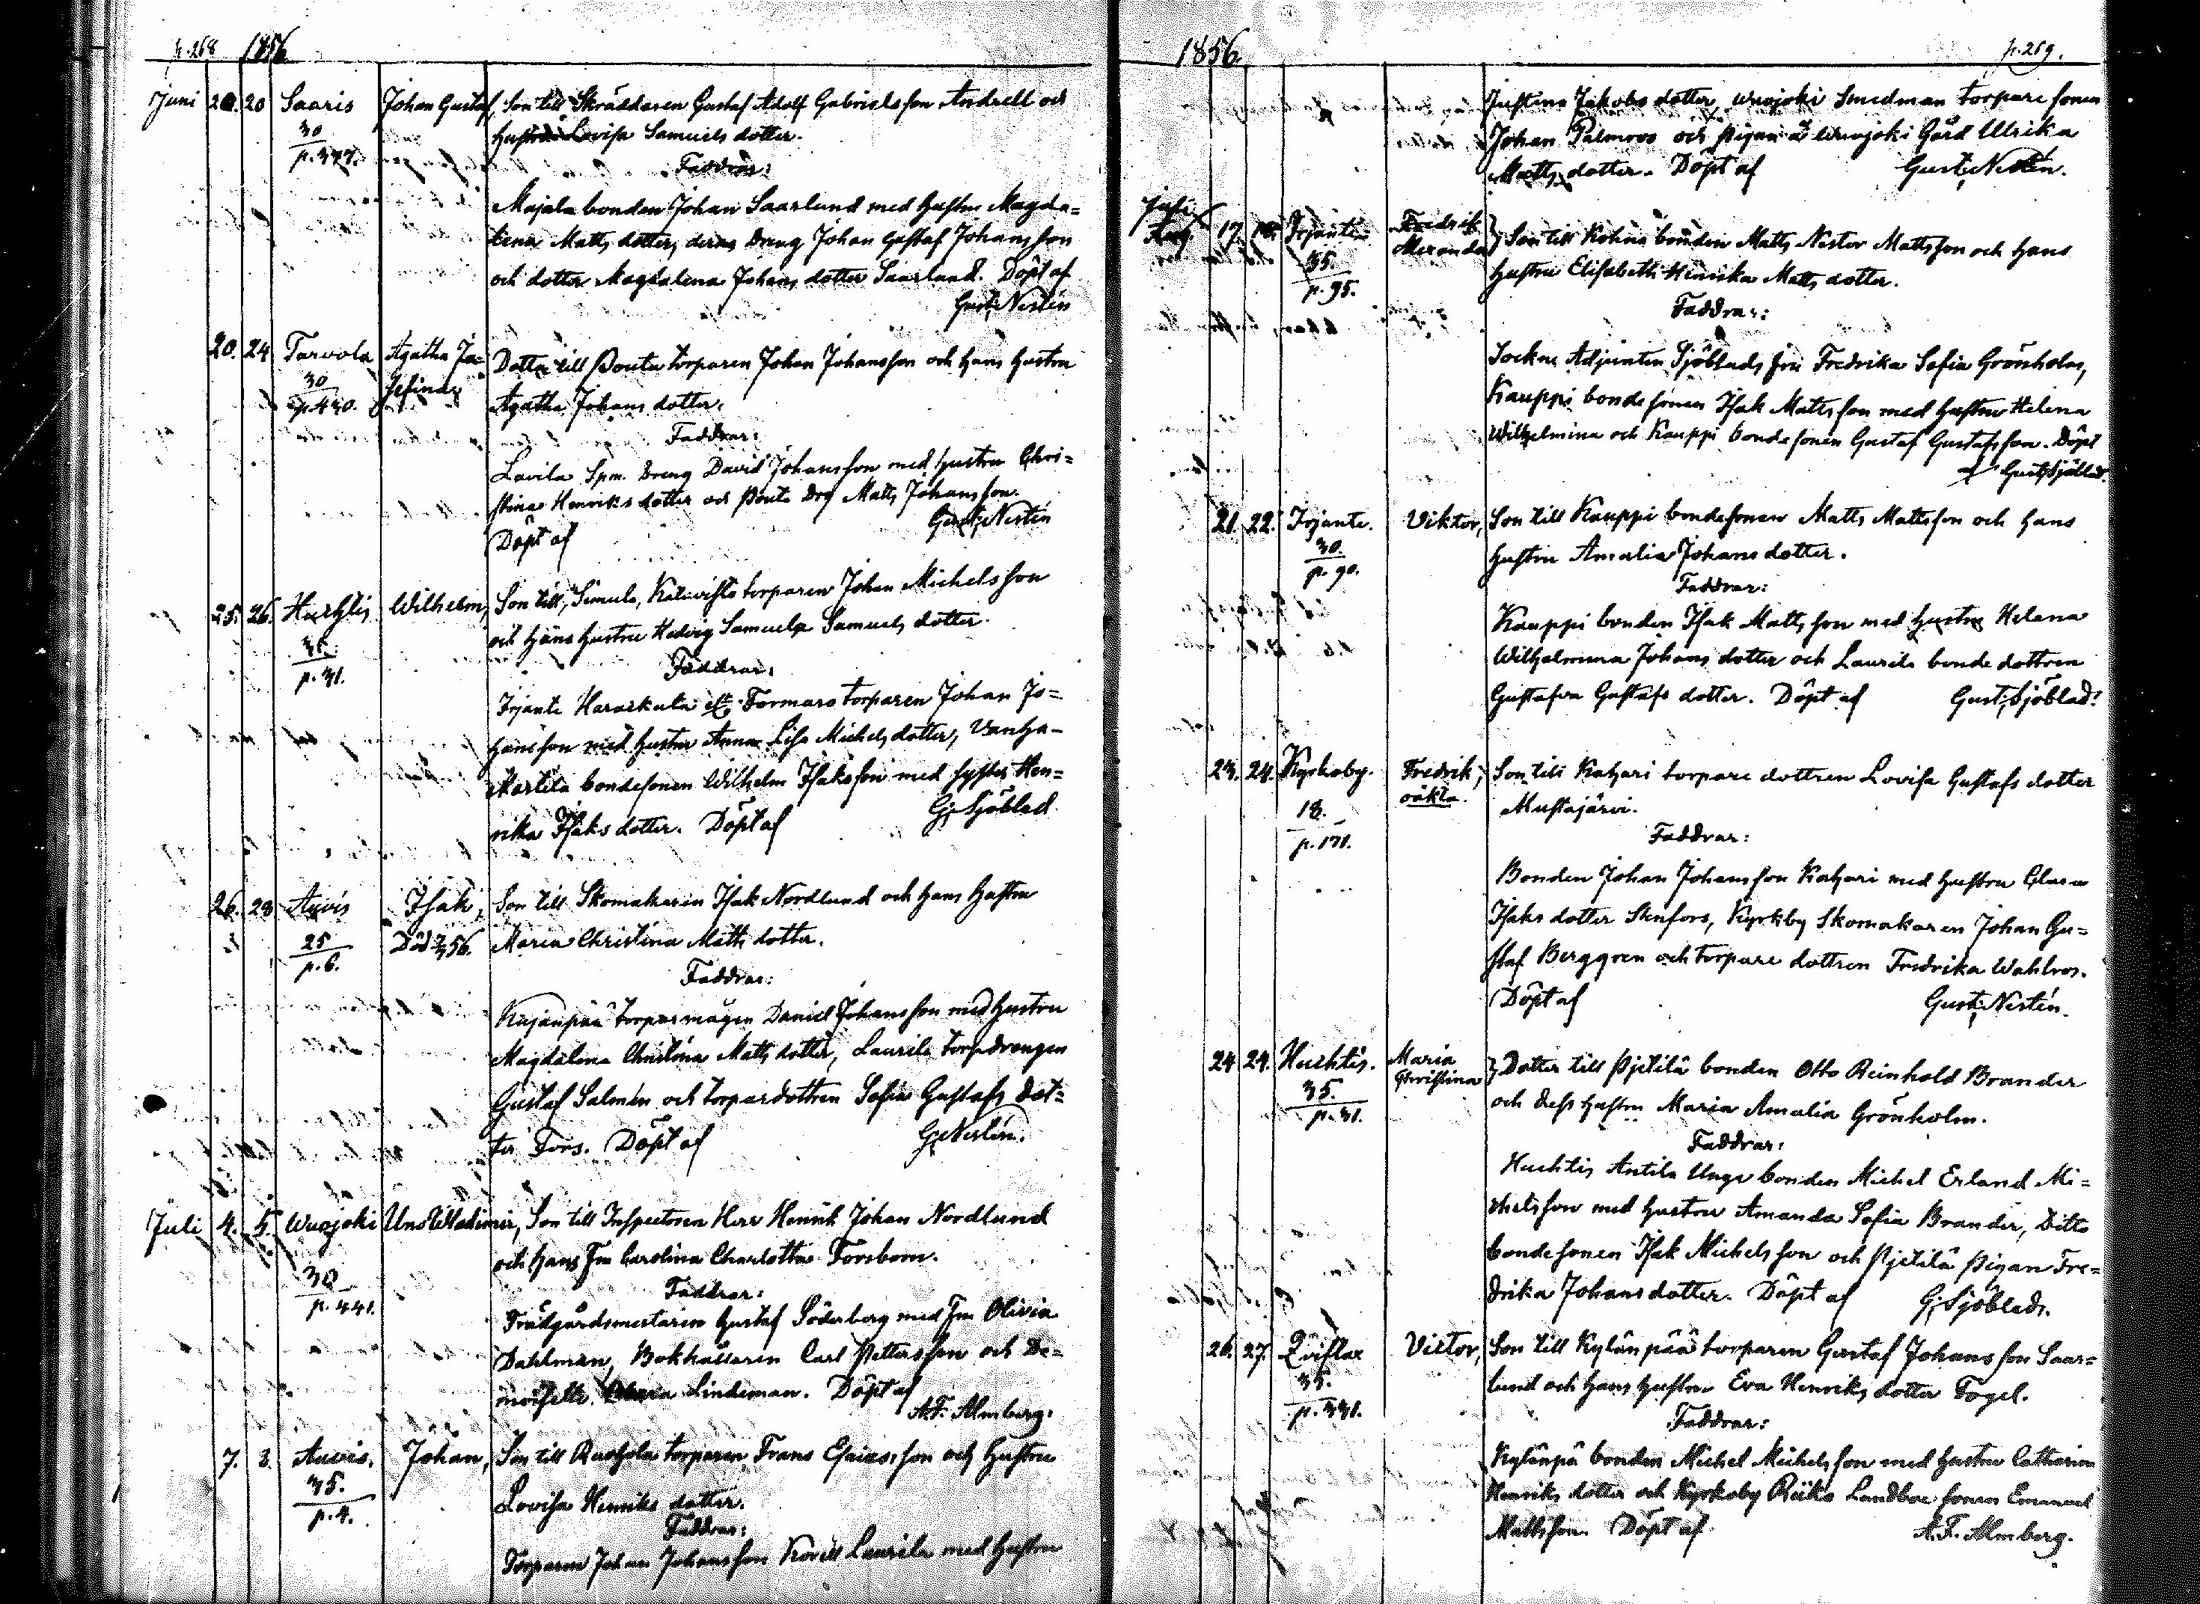 p. 268 1856
Juni 20. 20 Saaris Johan Gustaf, Son till Skräddaren Gustaf Adolf Gabrielsson Andrell och
30 Hustru Lovisa Samuels dotter.
p. 377. Faddrar:
Majala bonden Johan Saarlund med hustru Magda=
lena Matts dotter, deras Dreng Johan Gustaf Johansson
och dotter Magdalena Johans dotter Saarlund. Döpt af
Gust. Nestén
20. 24 Tarvola Agatha Jo= Dotter till Pouta torparen Johan Johansson och hans hustru
30 sefina,
p. 430. Agatha Johans dotter.
Faddrar:
Lavila Spm. Dreng David Johansson med hustru Chri=
stina Henriks dotter och Pouta Drg Matts Johansson.
Döpt af Gust. Nestén
25. 26. Huchtis Wilhelm, Son till, Simula, torparen Johan Michelsson
35. och hans hustru Hedvig Samuela Samuels dotter.
p. 31. Faddrar:
Irjante Haraskula Tormaro torparen Johan Jo=
hansson med hustru Anna Lisa Michels dotter, Vanha-
Martila bondesonen Wilhelm Isaksson med syster Hen=
rika Isaks dotter. Döpt af G. Sjöblad
26. 28 Auvis Isak, Son till Skomakaren Isak Nordlund och hans Hustru
25 Död 56. Maria Christina Matts dotter.
p. 6. Faddrar:
Kujanpää torparmågen Daniel Johansson med hustru
Magdalena Christina Matts dotter, Laurila torpdrengen
Gustaf Salmén och torpardottren Sofia Gustafs dot=
ter Fors. Döpt af G. Nestén.
Juli 4. 5. Wuojoki Uno Wladimir, Son till Inspectoren Herr Henrik Johan Nordlund
30 och hans Fru Carolina Charlotta Forsbom.
p. 441. Faddrar:
Trädgårdsmästaren Gustaf Söderberg med Fru Olivia
Dahlman, Bokhållaren Carl Pettersson och De=
moiselle Lindeman. Döpt af
A.F. Almberg.
7. 8. Auvis. Johan, Son till Ruohola torparen Frans Esaiasson och Hustru
35. Lovisa Henriks dotter.
p. 4. Faddrar:
Torparen Johan Johansson Laurila med Hustru
1856 p. 269.
Justina Jakobs dotter, Wuojoki Smedman torpare sonen
Johan Palmroos och Pigan å Wuojoki Gård Ulrika
Matts dotter. Döpt af Gust. Nestén.
Juli
17 18. Irjante Fredrik
Meranda Son till Kohna bonden Matts Nestor Mattsson och hans
35. Hustru Elisabeth Henrika Matts dotter.
p. 95. Faddrar:
Sockne Adjuncten Sjöblads fru Fredrika Sofia Grönholm,
Kauppi bondesonen Isak Mattsson med hustru Helena
Wilhelmina och Kauppi bondesonen Gustaf Gustafsson. Döpt
af Gust. Sjöblad.
21. 22. Irjante. Viktor, Son till Kauppi bondesonen Matts Mattsson och hans
30. hustru Amalia Johans dotter.
p. 90. Faddrar:
Kauppi bonden Isak Mattsson med hustru Helena
Wilhelmina Johans dotter och Laurila bonde dottren
Gustafva Gustafs dotter. Döpt af Gust. Sjöblad.
23. 24. Kyrkoby. Fredrik, Son till Katzari torpare dottren Lovisa Gustafs dotter
oäkta. Mustajärvi.
18.
p. 171. Faddrar:
Bonden Johan Johansson Katzari med hustru Clara
Isaks dotter Stenfors, Kyrkby Skomakaren Johan Gu=
staf Berggren och torpare dottren Fredrika Wahlros.
Döpt af Gust. Nestén.
24 24. Huchtis. Maria
Christina Dotter till Pjetilä bonden Otto Reinhold Brander
35. och dess Hustru Maria Amalia Grönholm.
p. 31. Faddrar:
Huchtis Antila Unge bonden Michel Erland Mi=
chelsson med hustru Amanda Sofia Brander, Ditto
bondesonen Isak Michelsson och Pjetilä Pigan Fre=
drika Johans dotter. Döpt af G. Sjöblad.
26. 27. Victor, Son till Kylänpää torparen Gustaf Johansson Saar=
35. lund och hans hustru Eva Henriks dotter Fogel.
p. 331. Faddrar:
Kylänpä bonden Michel Michelsson med hustru Catharina
Henriks dotter och Kyrkoby Riiko Landboe sonen Emanuel
Mattsson. Döpt af A.F. Almberg.